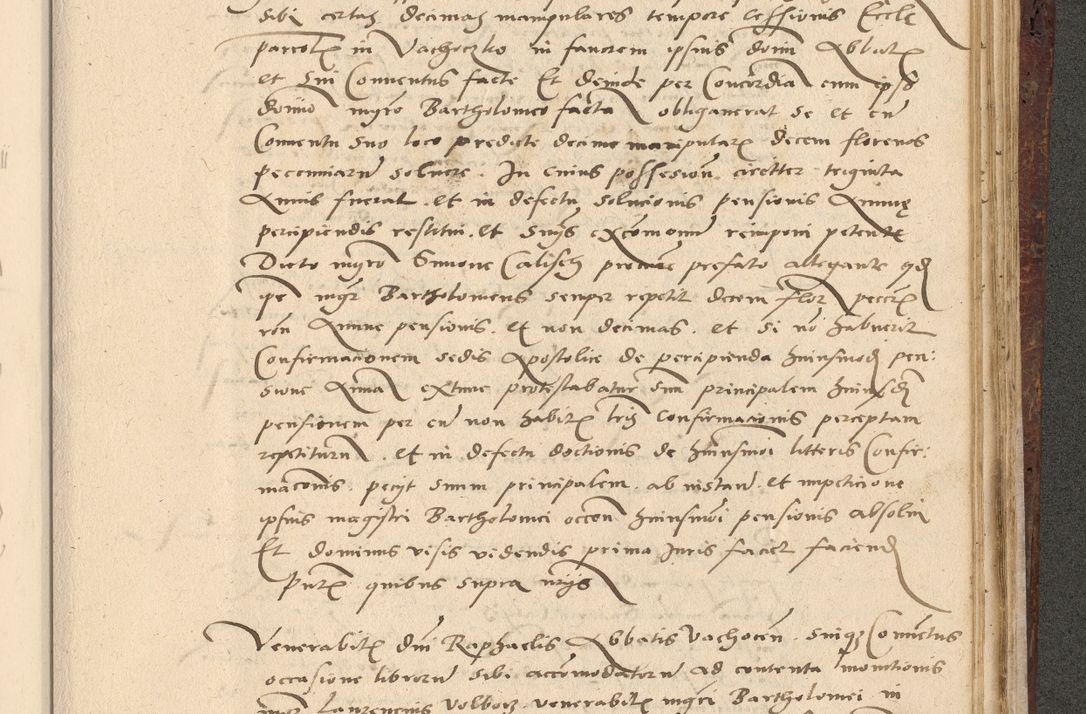 sibi certas decimas manipulares tempore cessionis Eccle
parrolis in Vachoczko in favorem ipsius domi Abbatis
et sui Conventus facte Et deinde per Concordia cum ipso
domino mgro Bartholomeo facta obliganerat se et eu
Conventu suo loco predicte decime manipularis decem florenos
pecuniaru solvere . In cuius possesion circiter triginta
Annis fuerat . et in defectu solucionis pensionis Annue
percipiendis restitui . et Snijs excomoni reimponi petente
Dicto mgro Simone Calisch procure prefato allegante qd
mgr Bartholomeus semper repetit decem flor peccu
ron Annue pensionis . et non decimas . et si no habuerit
Confirmacionem sedis Apostolice de percipienda huiusmodi pen:
sione Annua extunc protestabatur sum principalem huiusmodi
pensionem per eu non habitis tris confirmacionis perceptam
repetituru . et in defectu doctionis de huiusmoi litteris Confir:
macionis . pecijt suum principalem . ab instan . et impeticione
ipsius magistri Bartholomei occon huiusmoi pensionis absolui
Et dominus visis videndis prima Juris faciet faciend
Pntis quibus supra
Venerabilis dni Raphaelis Abbatis Vachocen . suiq Conuetus
occasione libroru sibi accomodatoru ad contenta monitionis
Laurencius Volborz venerabilis mgri Bartholomei in